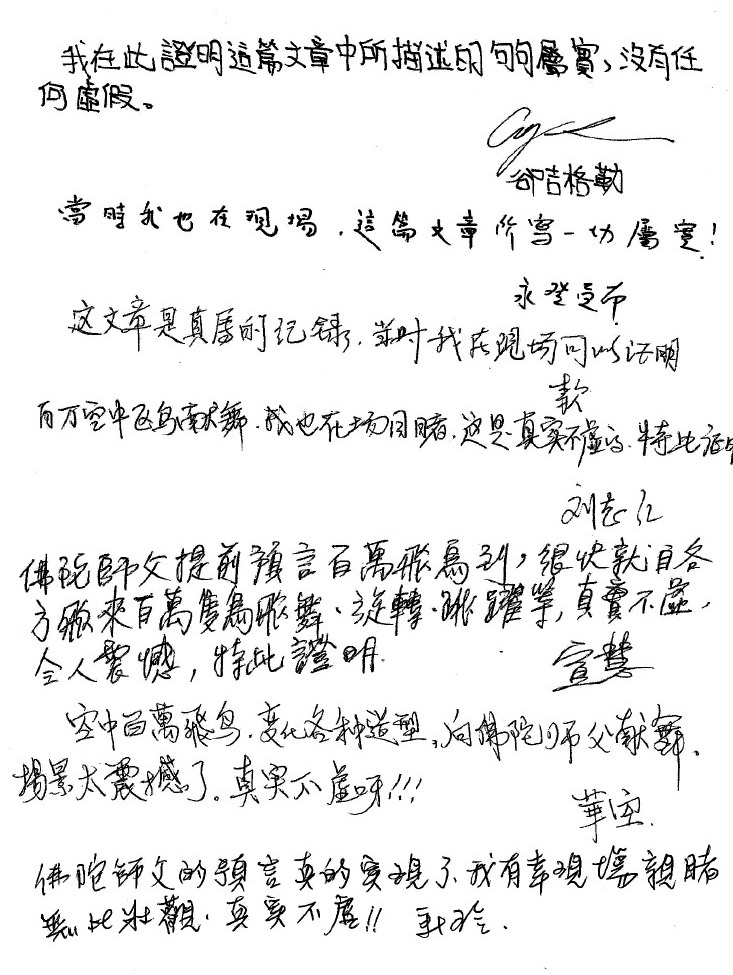 我在此證明這篇文章中所描述的句句屬實，沒有任
何虛假。
卻吉格勒
當時我也在現場，這篇文章所寫一切屬實！
永登
这文章是真实的纪录，当时我在现场可以证明
百万空中飞鸟献舞，我也在场目睹，这是真实不虚的，特此证明
刘志仁
佛陀師父提前預言百萬飛鳥到，很快就自各
方飛來百萬隻鳥飛舞、旋轉、跳躍等，真實不虛，
令人震憾，特此證明
宣慧
空中百萬飛鸟，变化各种造型，向佛陀师父献舞，
場景太震撼了。真实不虛呀!!!
華
佛陀師父的預言真的實現了，我有幸現場親睹
無比壯觀，真实不虛!!